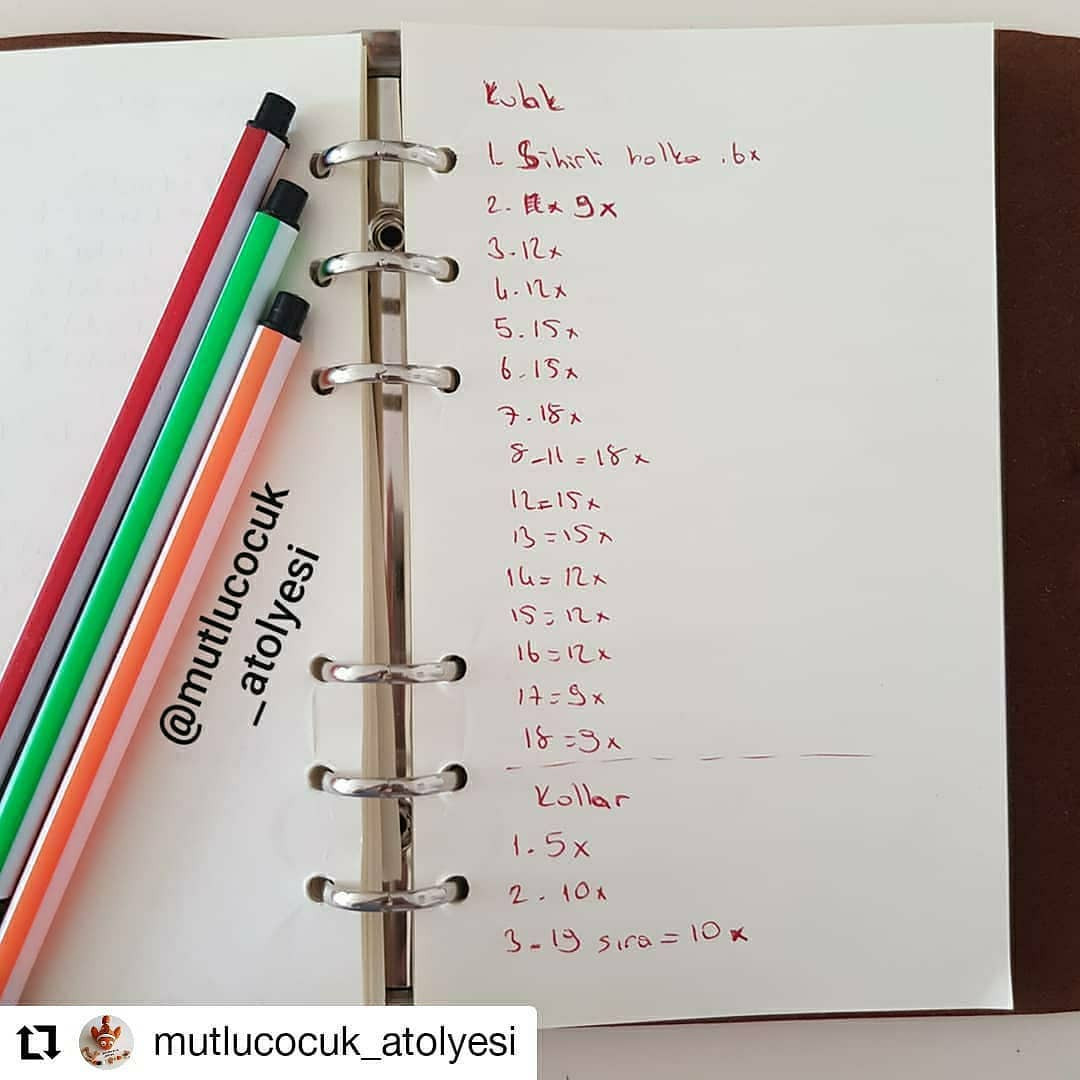 Kulak
1. Sihirli halka .6x
2. 9x
3-12x
4.12x
5.15x
6.15x
7.18x
8-11=18x
12=15x
13=15x
14=12x
15=12x
16=12x
17=9x
18=9x
Kollar
1.5x
2.10x
3-19 sıra=10x
@mutlucocuk
_atolyesi
mutlucocuk_atolyesi